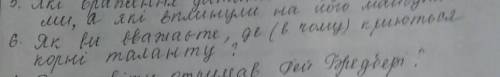 5. Які враження
ми, а які вплинули на його
6. Як ви вважаєте, де (в чому) криються
корні таланту?
отримав Рей Бредбері?